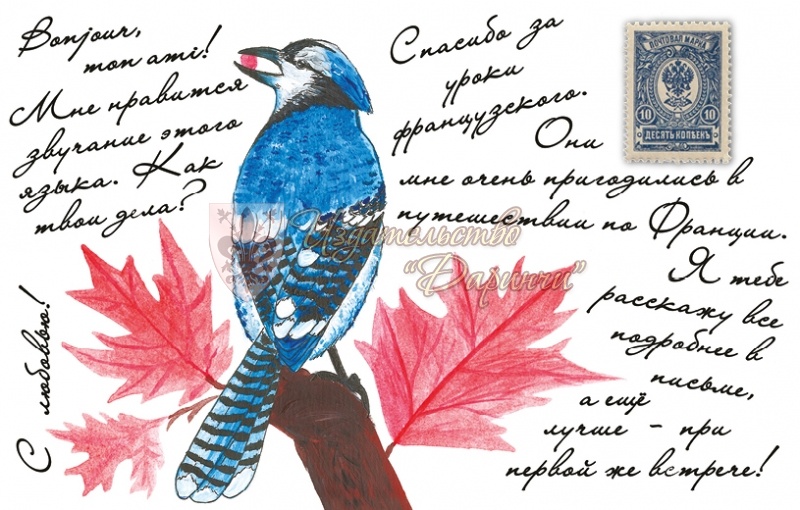 Bonjour,
mon ami!
Мне нравится
звучание этого
языка. Как
твои дела?
С любовью!
Спасибо за
уроки
французского.
Они
мне очень пригодились в
путешествии по Франции.
Я тебе
расскажу все
подробнее в
письме,
а ещё
лучше - при
первой же встрече!
ПОЧТОВАЯ МАРКА
10 10
ДЕСЯТЬ КОПѢЕКЪ
Издательство
"Даринчи"